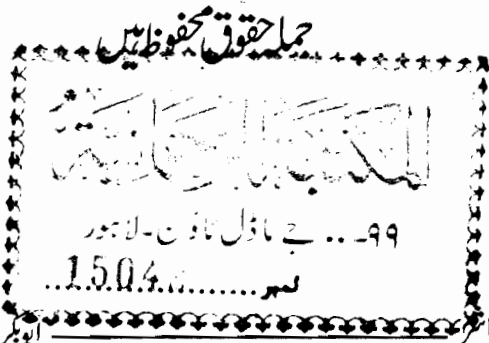 جملہ حقوق محفوظ ہیں
المکتبۃ الرحمانیۃ
۹۹... جے ماڈل ٹاؤن - لاہور
نمبر.......15048...
ابوبکر